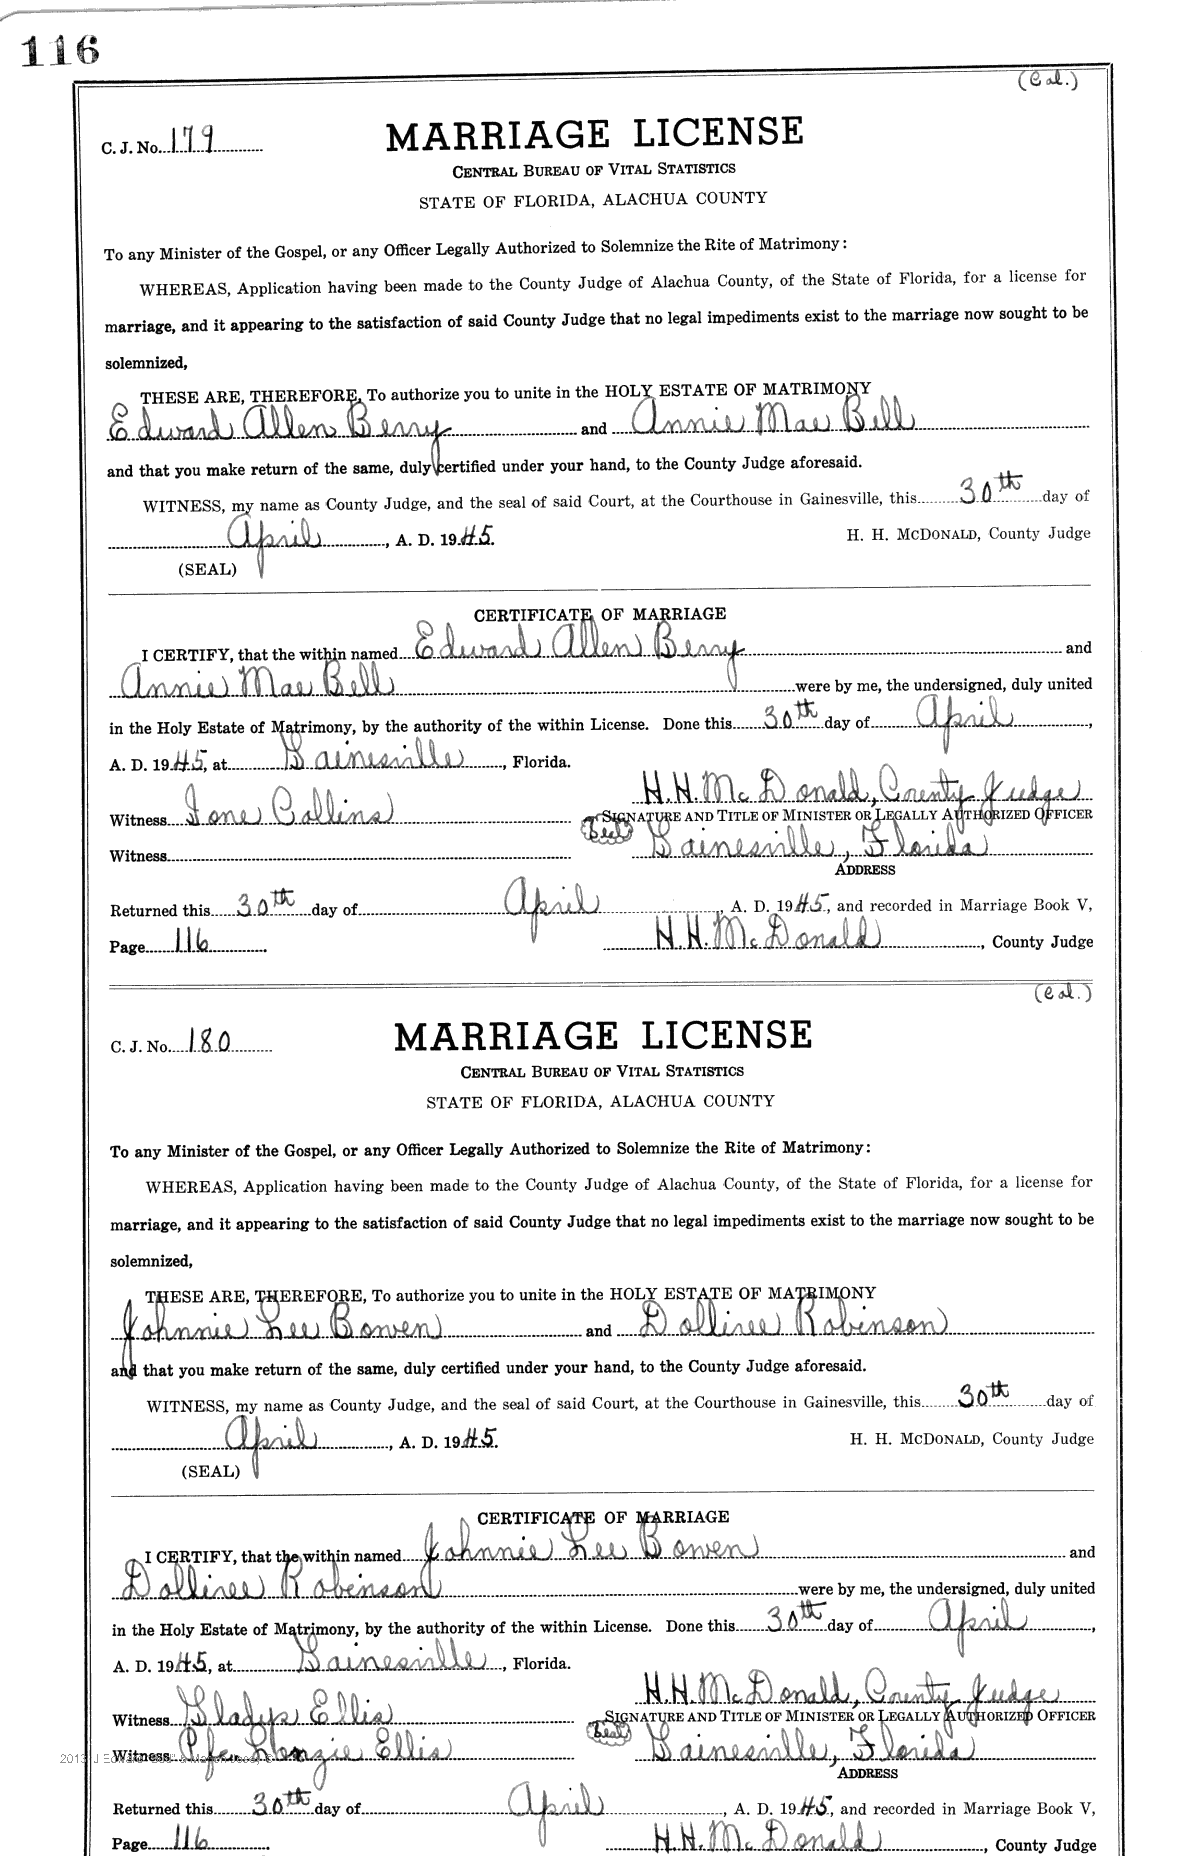 116
(Col.)
C. J. No. 179
MARRIAGE LICENSE
CENTRAL BUREAU OF VITAL STATISTICS
STATE OF FLORIDA, ALACHUA COUNTY
To any Minister of the Gospel, or any Officer Legally Authorized to Solemnize the Rite of Matrimony:
WHEREAS, Application having been made to the County Judge of Alachua County, of the State of Florida, for a license for
marriage, and it appearing to the satisfaction of said County Judge that no legal impediments exist to the marriage now sought to be
solemnized,
THESE ARE, THEREFORE, To authorize you to unite in the HOLY ESTATE OF MATRIMONY
Edward Allen Berry and Annie Mae Bell
and that you make return of the same, duly certified under your hand, to the County Judge aforesaid.
WITNESS, my name as County Judge, and the seal of said Court, at the Courthouse in Gainesville, this 30th day of
April, A. D. 1945. H. H. MCDONALD, County Judge
(SEAL)
CERTIFICATE OF MARRIAGE
I CERTIFY, that the within named Edward Allen Berry and
Annie Mae Bell were by me, the undersigned, duly united
in the Holy Estate of Matrimony, by the authority of the within License. Done this 30th day of April,
A. D. 1945, at Gainesville, Florida.
H. H. McDonald, County Judge
Witness Ione Collins (Seal) SIGNATURE AND TITLE OF MINISTER OR LEGALLY AUTHORIZED OFFICER
Witness Gainesville, Florida
ADDRESS
Returned this 30th day of April, A. D. 1945, and recorded in Marriage Book V,
Page 116 H. H. McDonald, County Judge
(Col.)
C. J. No. 180
MARRIAGE LICENSE
CENTRAL BUREAU OF VITAL STATISTICS
STATE OF FLORIDA, ALACHUA COUNTY
To any Minister of the Gospel, or any Officer Legally Authorized to Solemnize the Rite of Matrimony:
WHEREAS, Application having been made to the County Judge of Alachua County, of the State of Florida, for a license for
marriage, and it appearing to the satisfaction of said County Judge that no legal impediments exist to the marriage now sought to be
solemnized,
THESE ARE, THEREFORE, To authorize you to unite in the HOLY ESTATE OF MATRIMONY
Johnnie Lee Bowen and Dolliree Robinson
and that you make return of the same, duly certified under your hand, to the County Judge aforesaid.
WITNESS, my name as County Judge, and the seal of said Court, at the Courthouse in Gainesville, this 30th day of
April, A. D. 1945. H. H. MCDONALD, County Judge
(SEAL)
CERTIFICATE OF MARRIAGE
I CERTIFY, that the within named Johnnie Lee Bowen and
Dolliree Robinson were by me, the undersigned, duly united
in the Holy Estate of Matrimony, by the authority of the within License. Done this 30th day of April,
A. D. 1945, at Gainesville, Florida.
H. H. McDonald, County Judge
Witness Gladys Ellis (Seal) SIGNATURE AND TITLE OF MINISTER OR LEGALLY AUTHORIZED OFFICER
Witness Pfc. Ellis Gainesville, Florida
ADDRESS
Returned this 30th day of April, A. D. 1945, and recorded in Marriage Book V,
Page 116 H. H. McDonald, County Judge